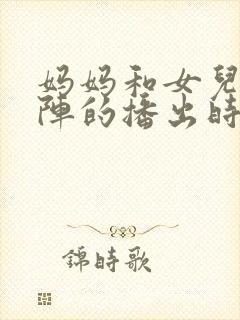 妈妈和女兒
陣的播出時
錦時歌